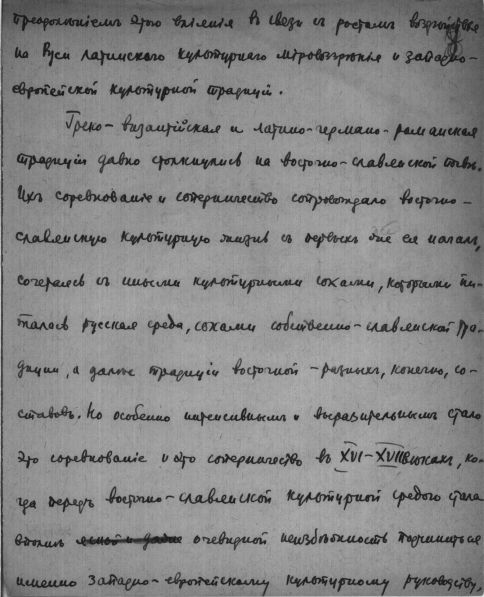 преодолѣніемъ этого вліянія въ связи съ ростомъ воздѣйствія
на Руси латинскаго культурнаго міровоззрѣнія и западно-
европейской культурной традиціи.
Греко-византійская и латино-германо-романская
традиціи давно столкнулись на восточно-славянской почвѣ.
Ихъ соревнованіе и соперничество сопровождало восточно-
славянскую культурную жизнь съ первыхъ же ея началъ,
сочетаясь съ иными культурными соками, которыми пи-
талась русская среда, соками собственно-славянской тра-
диціи, а далѣе традиціи восточной - разныхъ, конечно, со-
ставовъ. Но особенно интенсивнымъ и выразительнымъ стало
это соревнованіе и это соперничество въ XVI-XVII вѣкахъ, ко-
гда передъ восточно-славянской культурной средою стала
вполнѣ очевидной неизбѣжность подчиниться
именно западно-европейскому культурному руководству,